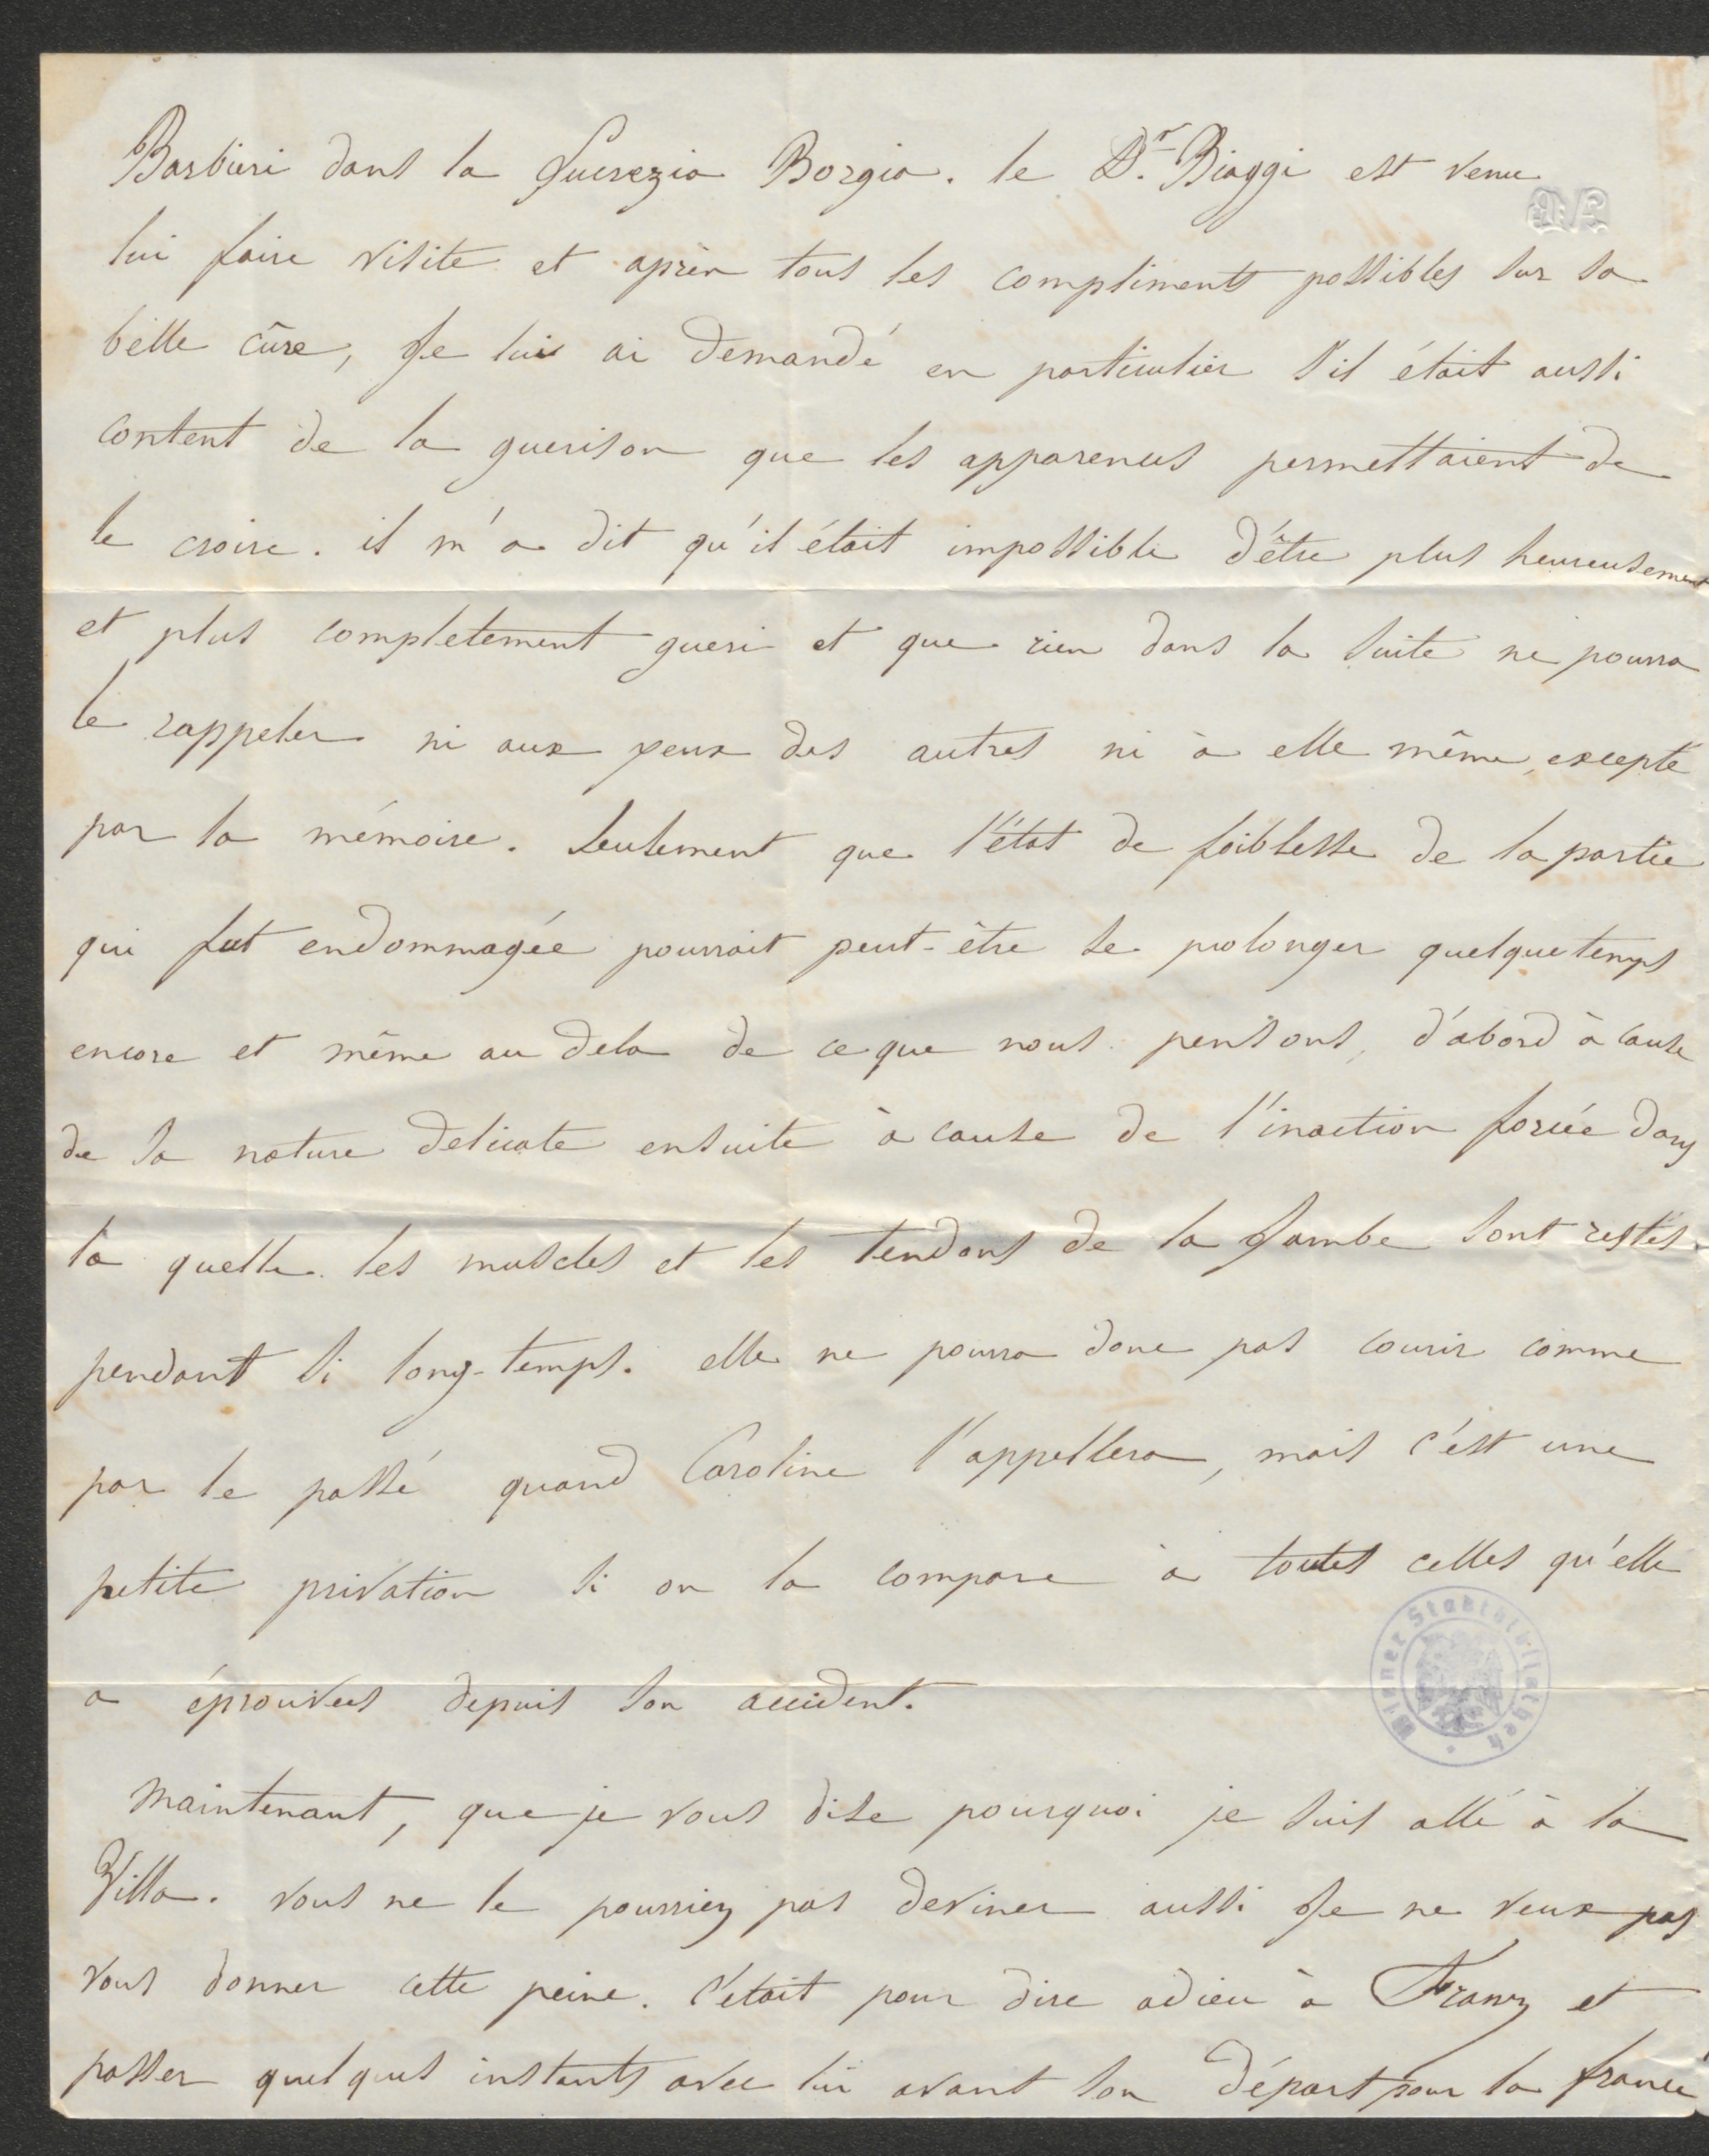 Barbieri dans la Lucrezia Borgia. le Dr. Biaggi est venu
lui faire visite et après tous les compliments possibles sur sa
belle cûre, Je lui ai demandé en particulier s'il était aussi
content de la guerison que les apparences permettaient de
le croire. il m'a dit qu'il était impossible d'être plus heureusement
et plus completement gueri et que rien dans la suite ne pourra
le rappeler ni aux yeux des autres ni à elle même, excepté
par la mémoire. Seulement que l'état de faiblesse de la partie
qui fut endommagée pourrait peut-être se prolonger quelque temps
encore et même au dela de ce que nous pensons, d'abord à cause
de sa nature delicate ensuite à cause de l'inaction forcée dans
la quelle les muscles et les tendons de la Jambe sont restés
pendant si long-temps. elle ne pourra donc pas courir comme
par le passé quand Caroline l'appellera, mais c'est une
petite privation si on la compare à toutes celles qu'elle
a éprouvees depuis son accident.
Wiener Stadtbibliothek
Maintenant, que je vous dise pourquoi je suis allé à la
Villa. vous ne le pourriez pas deviner aussi Je ne veux pas
vous donner cette peine. C'etait pour dire adieu à Franz et
passer quelques instants avec lui avant son départ pour la france